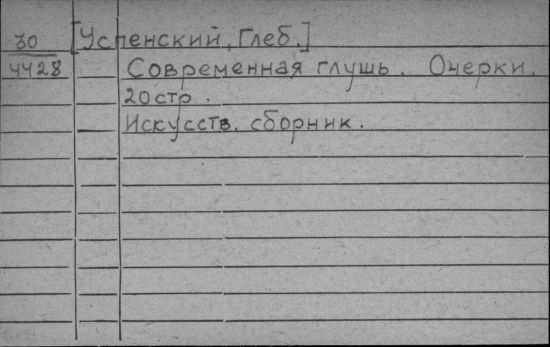 30 [Успенский, Глеб.]
4428 Современная глушь. Очерки.
20стр.
Искусств. сборник.